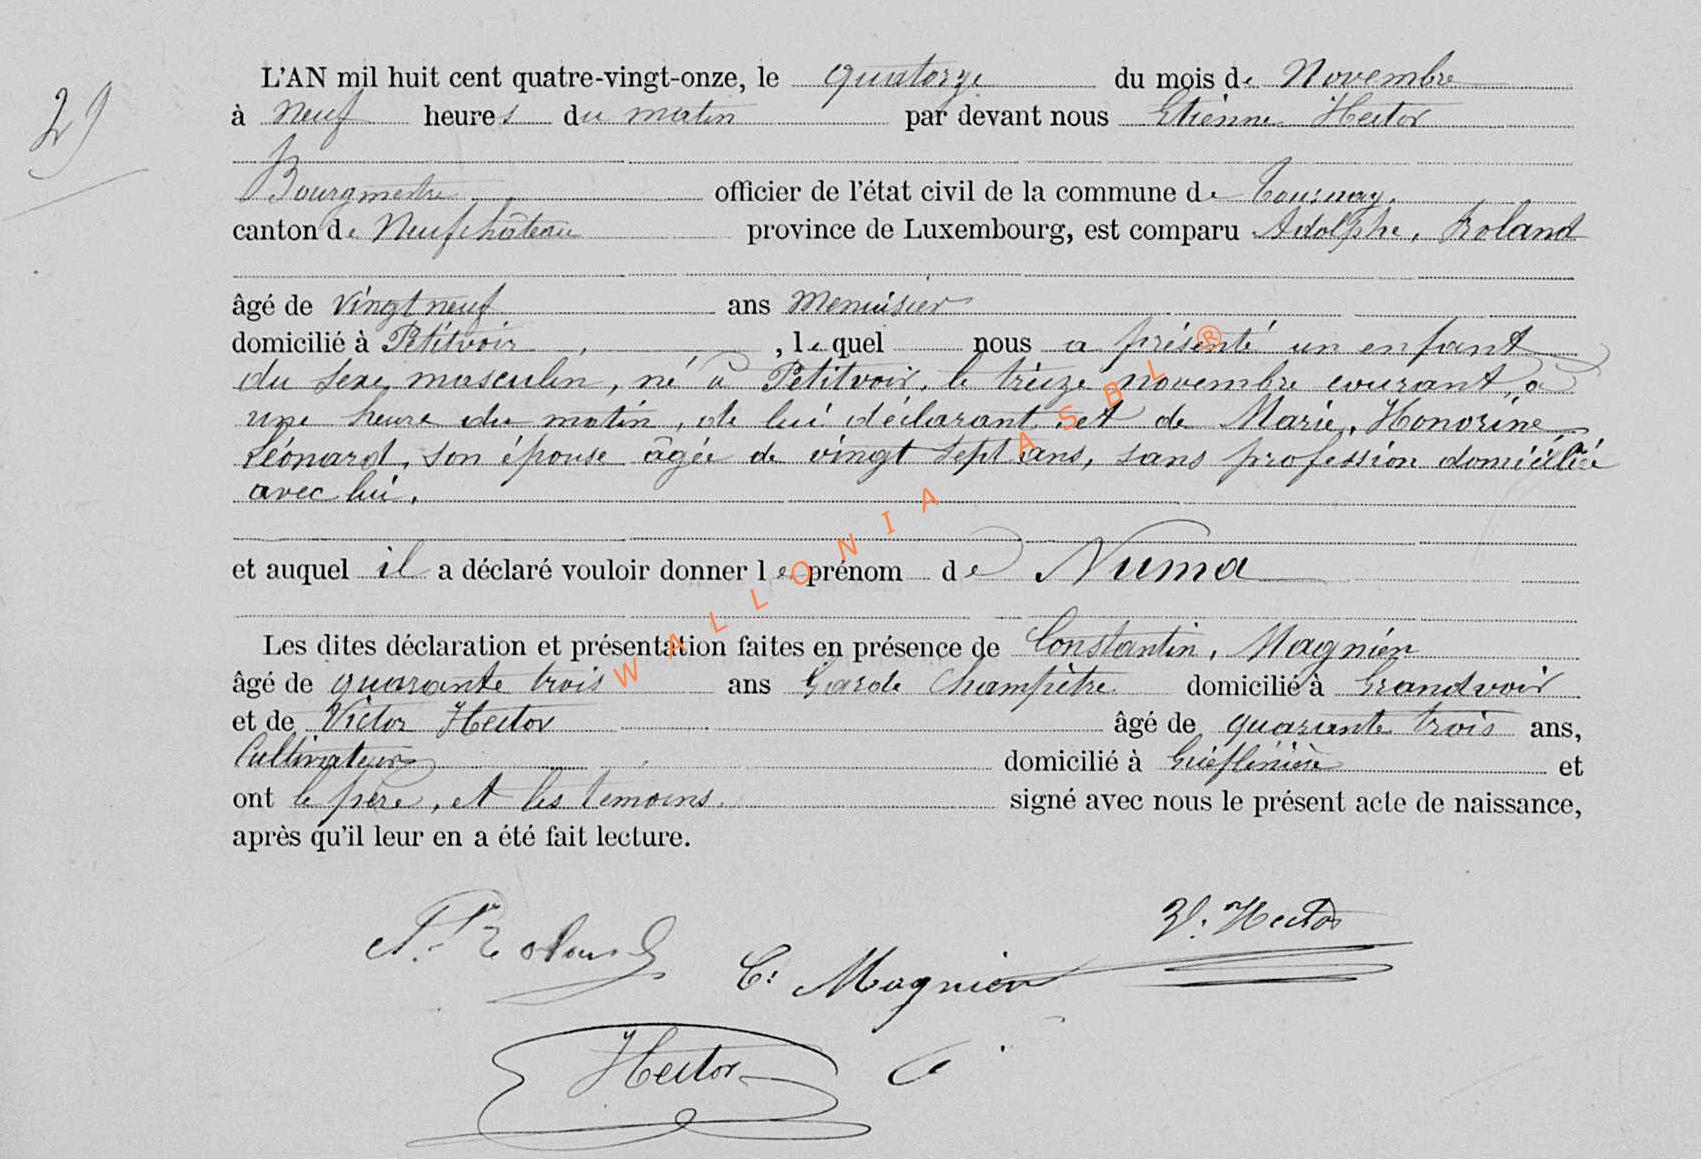 29
L'AN mil huit cent quatre-vingt-onze, le quatorze du mois de Novembre
à neuf heures du matin par devant nous Etienne Hector
Bourgmestre officier de l'état civil de la commune de Tournay.
canton de Neufchâteau province de Luxembourg, est comparu Adolphe, Roland
âgé de vingt neuf ans menuisier
domicilié à Petitvoir, lequel nous a présenté un enfant
du sexe masculin, né à Petitvoir, le treize novembre courant, à
une heure du matin, de lui déclarant et de Marie, Honorine
Léonard, son épouse âgée de vingt sept ans, sans profession domiciliée
avec lui.
et auquel il a déclaré vouloir donner le prénom de Numa
Les dites déclaration et présentation faites en présence de Constantin, Magnien
âgé de quarante trois ans Garde Champêtre domicilié à Grandvoir
et de Victor Hector âgé de quarante trois ans,
Cultivateur domicilié à et
ont le père, et les témoins. signé avec nous le présent acte de naissance,
après qu'il leur en a été fait lecture.
Roland
V. Hector
C. Magnien
Hector
WALLONIA ASBL ®